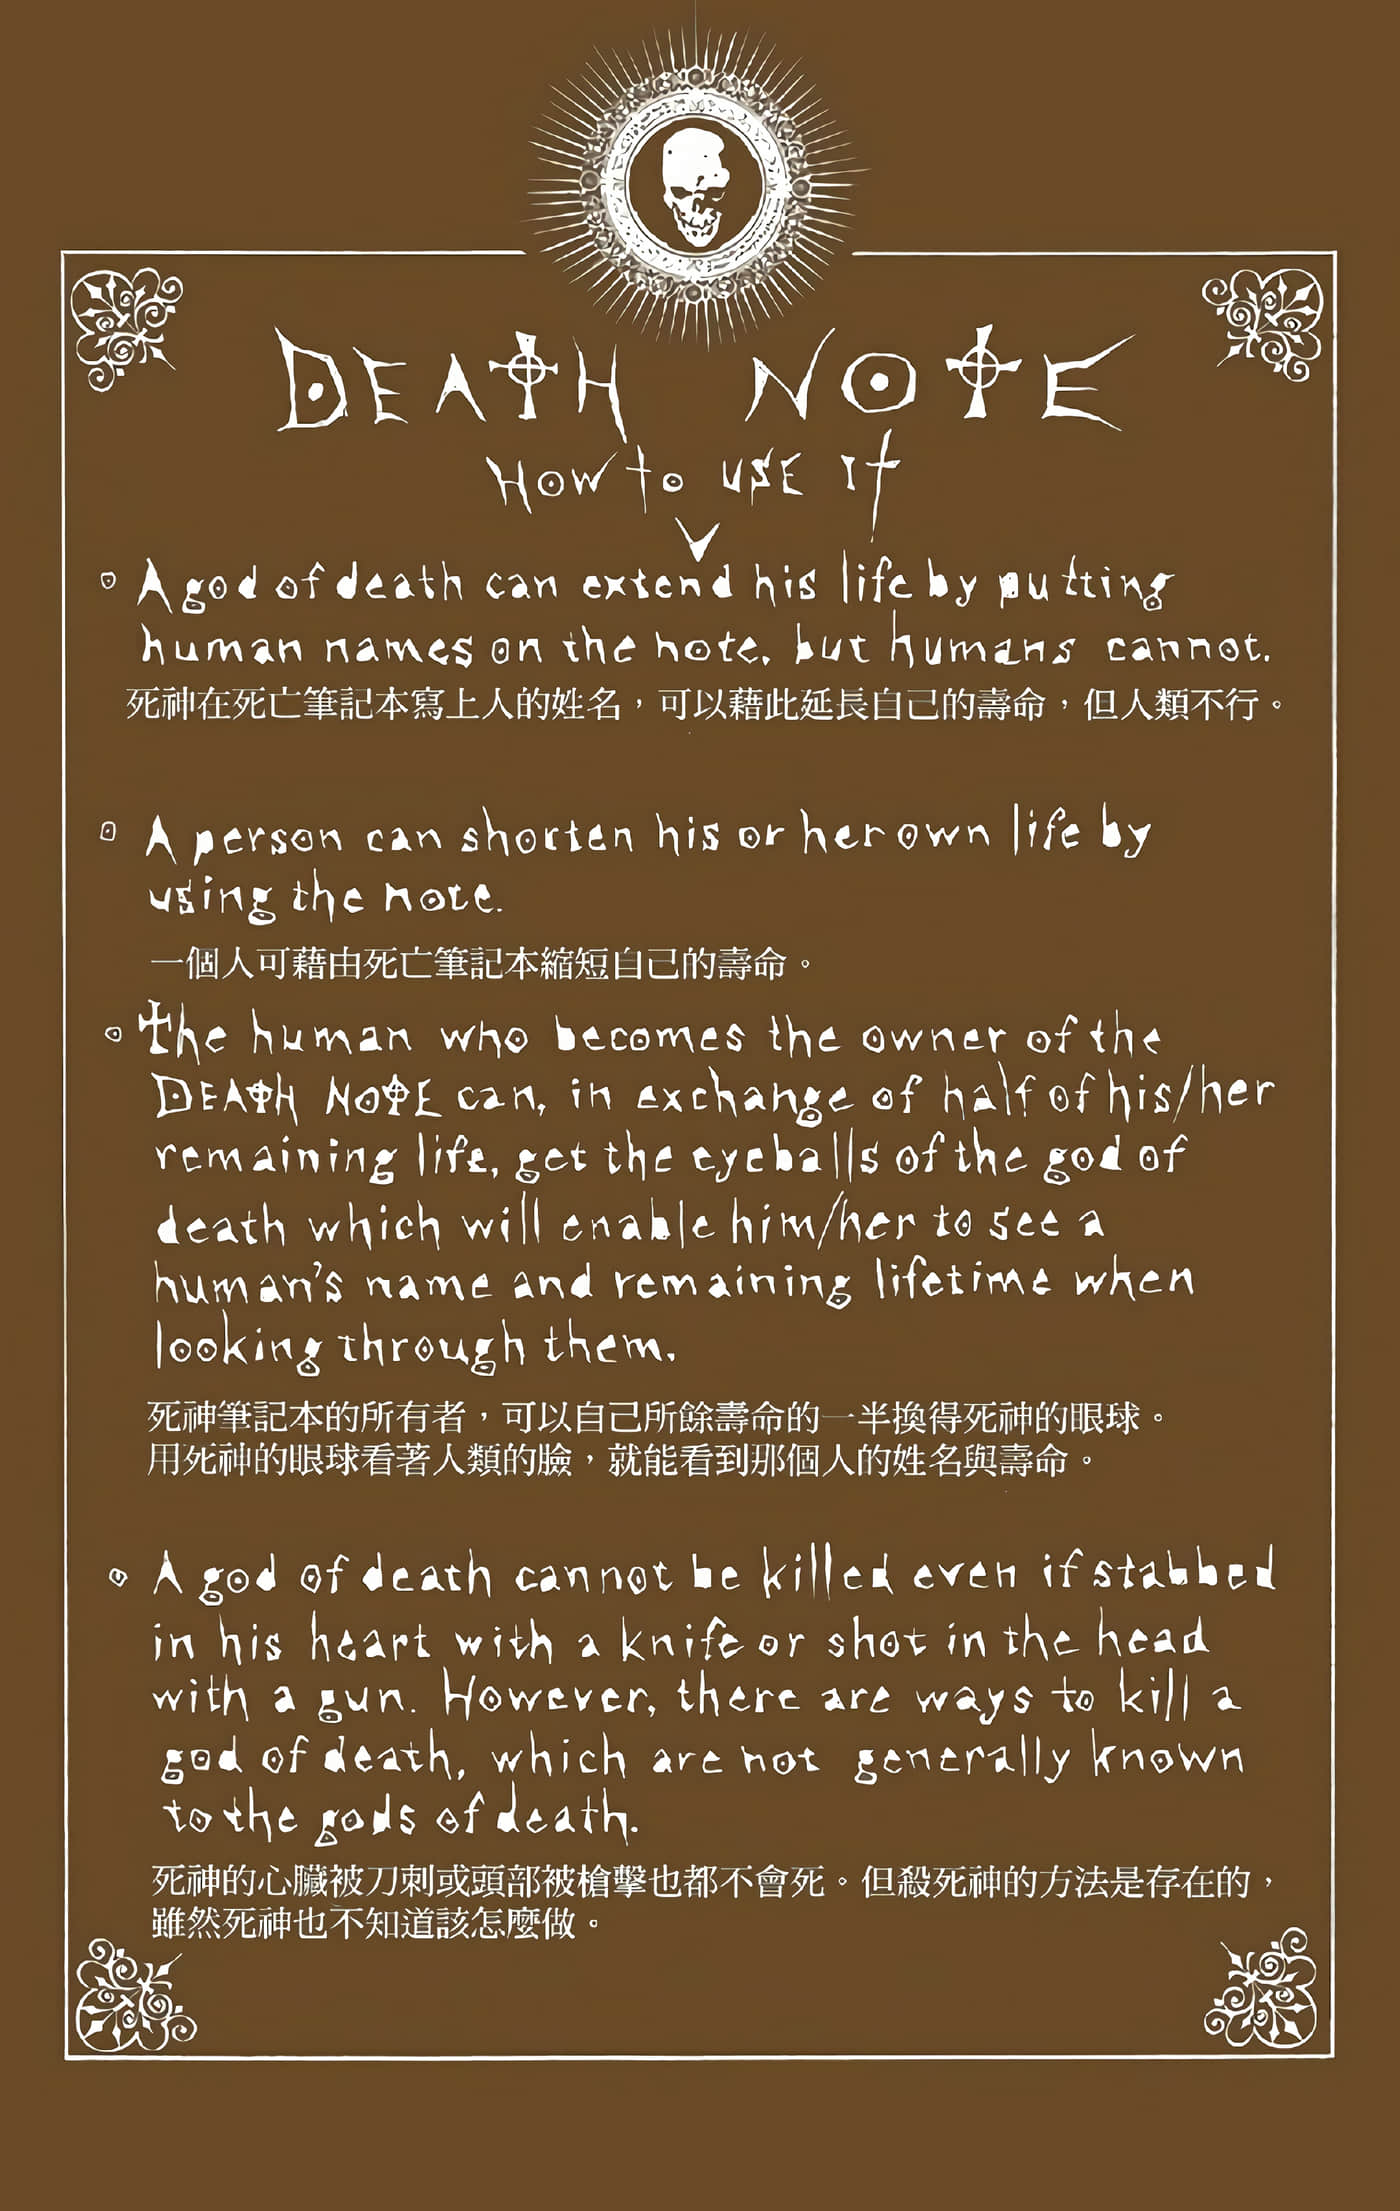 DEATH NOTE
HOW to USE It
A god of death can extend his life by putting
human names on the note, but humans cannot.
死神在死亡筆記本寫上人的姓名，可以藉此延長自己的壽命，但人類不行。
A person can shorten his or her own life by
using the note.
一個人可藉由死亡筆記本縮短自己的壽命。
The human who becomes the owner of the
DEATH NOTE can, in exchange of half of his/her
remaining life, get the eyeballs of the god of
death which will enable him/her to see a
human's name and remaining lifetime when
looking through them.
死神筆記本的所有者，可以自己所餘壽命的一半換得死神的眼球。
用死神的眼球看著人類的臉，就能看到那個人的姓名與壽命。
A god of death cannot be killed even if stabbed
in his heart with a knife or shot in the head
with a gun. However, there are ways to kill a
god of death, which are not generally known
to the gods of death.
死神的心臟被刀刺或頭部被槍擊也都不會死。但殺死神的方法是存在的，
雖然死神也不知道該怎麼做。